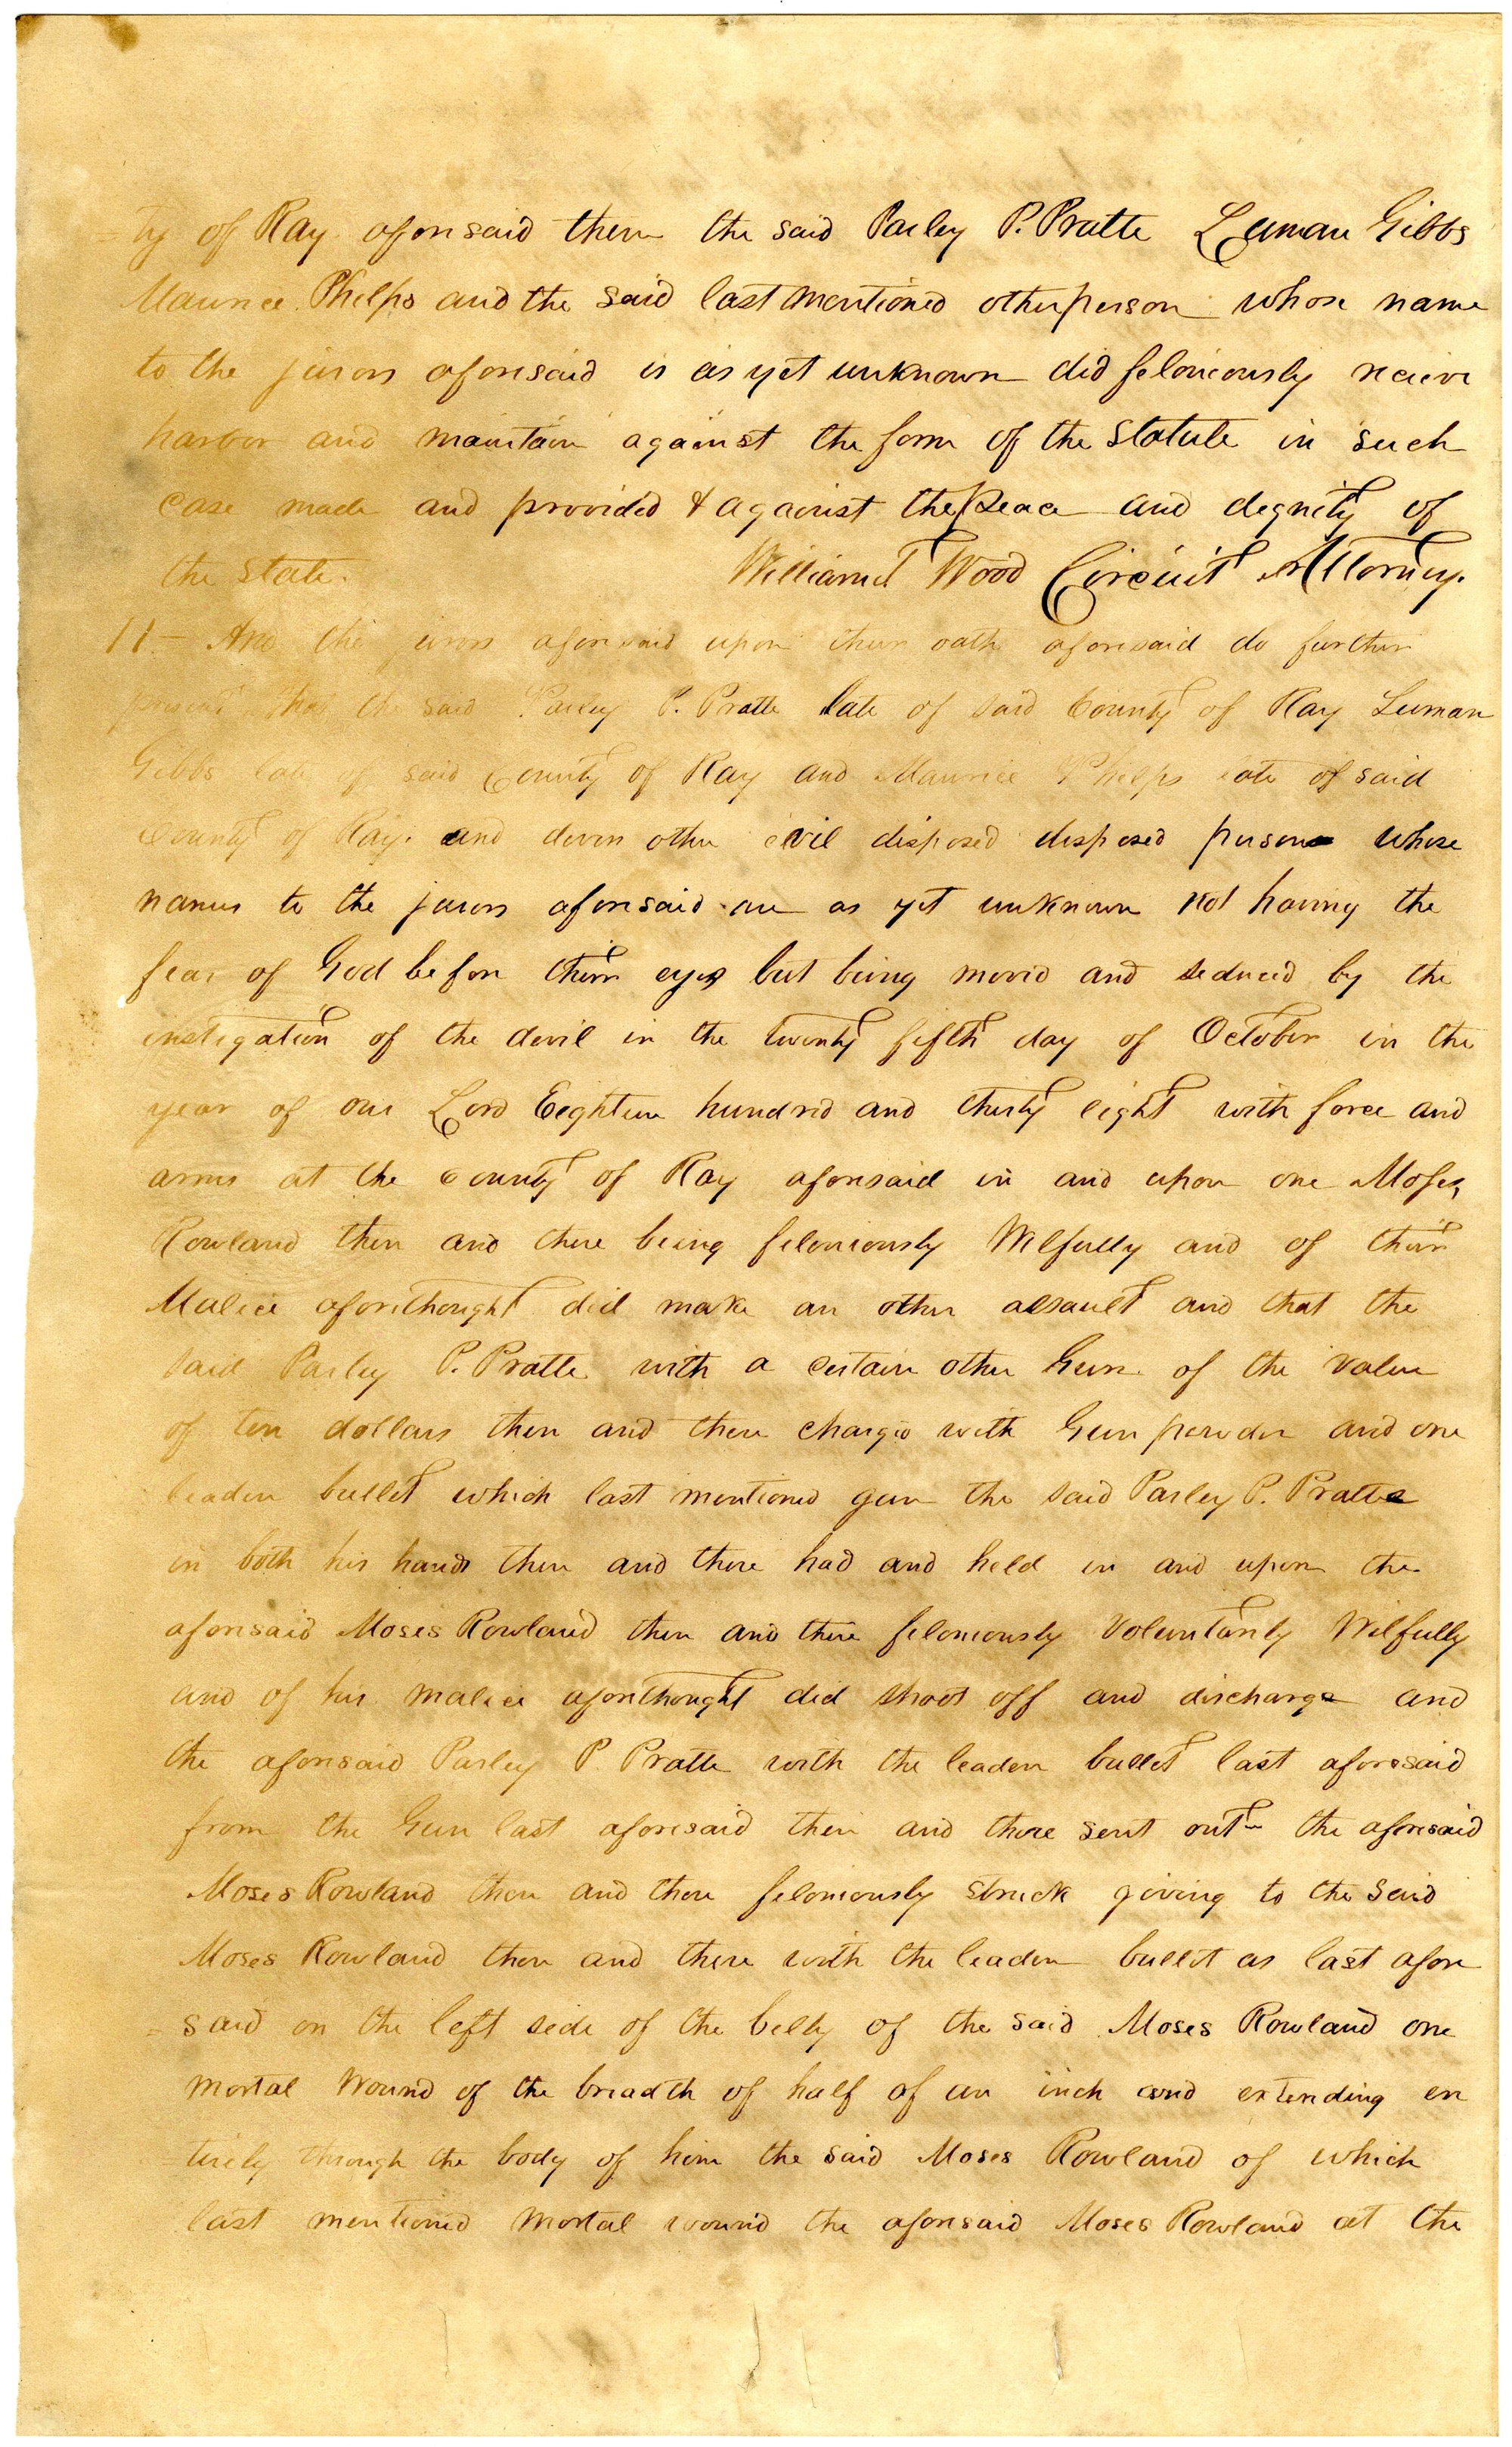 =ty of Ray aforesaid them the said Parley P. Pratte Luman Gibbs
Maurice Phelps and the said last mentioned other person whose name
to the jurors aforesaid is as yet unknown did feloniously recieve
harbor and maintain against the form of the Statute in such
case made and provided & against the peace and dignity of
the State. William T Wood Circuit Attorney.
11 - And the jurors aforesaid upon their oath aforesaid do further
present that the said Parley P. Pratte late of said County of Ray Luman
Gibbs late of said County of Ray and Maurice Phelps late of said
County of Ray. and divers other evil disposed disposed persons whose
names to the jurors aforesaid are as yet unknown not having the
fear of God before their eyes but being moved and seduced by the
instigation of the devil in the twenty fifth day of October in the
year of our Lord Eighteen hundred and thirty eight with force and
arms at the county of Ray aforesaid in and upon one Moses
Rowland then and there being feloniously Wilfully and of their
Malice aforethought did make an other assault and that the
said Parley P. Pratte with a certain other Gun of the value
of ten dollars then and there charged with Gun powder and one
leaden bullet which last mentioned gun the said Parley P. Pratte
in both his hands then and there had and held in and upon the
aforesaid Moses Rowland then and there feloniously Voluntarily Wilfully
and of his malice aforethought did shoot off and discharge and
the aforesaid Parley P. Pratte with the leaden bullet last aforesaid
from the Gun last aforesaid then and there sent out the aforesaid
Moses Rowland then and there feloniously struck giving to the said
Moses Rowland then and there with the leaden bullet as last afore
= said on the left side of the belly of the said Moses Rowland one
mortal wound of the breadth of half of an inch and extending en
tirely through the body of him the said Moses Rowland of which
last mentioned mortal wound the aforesaid Moses Rowland at the